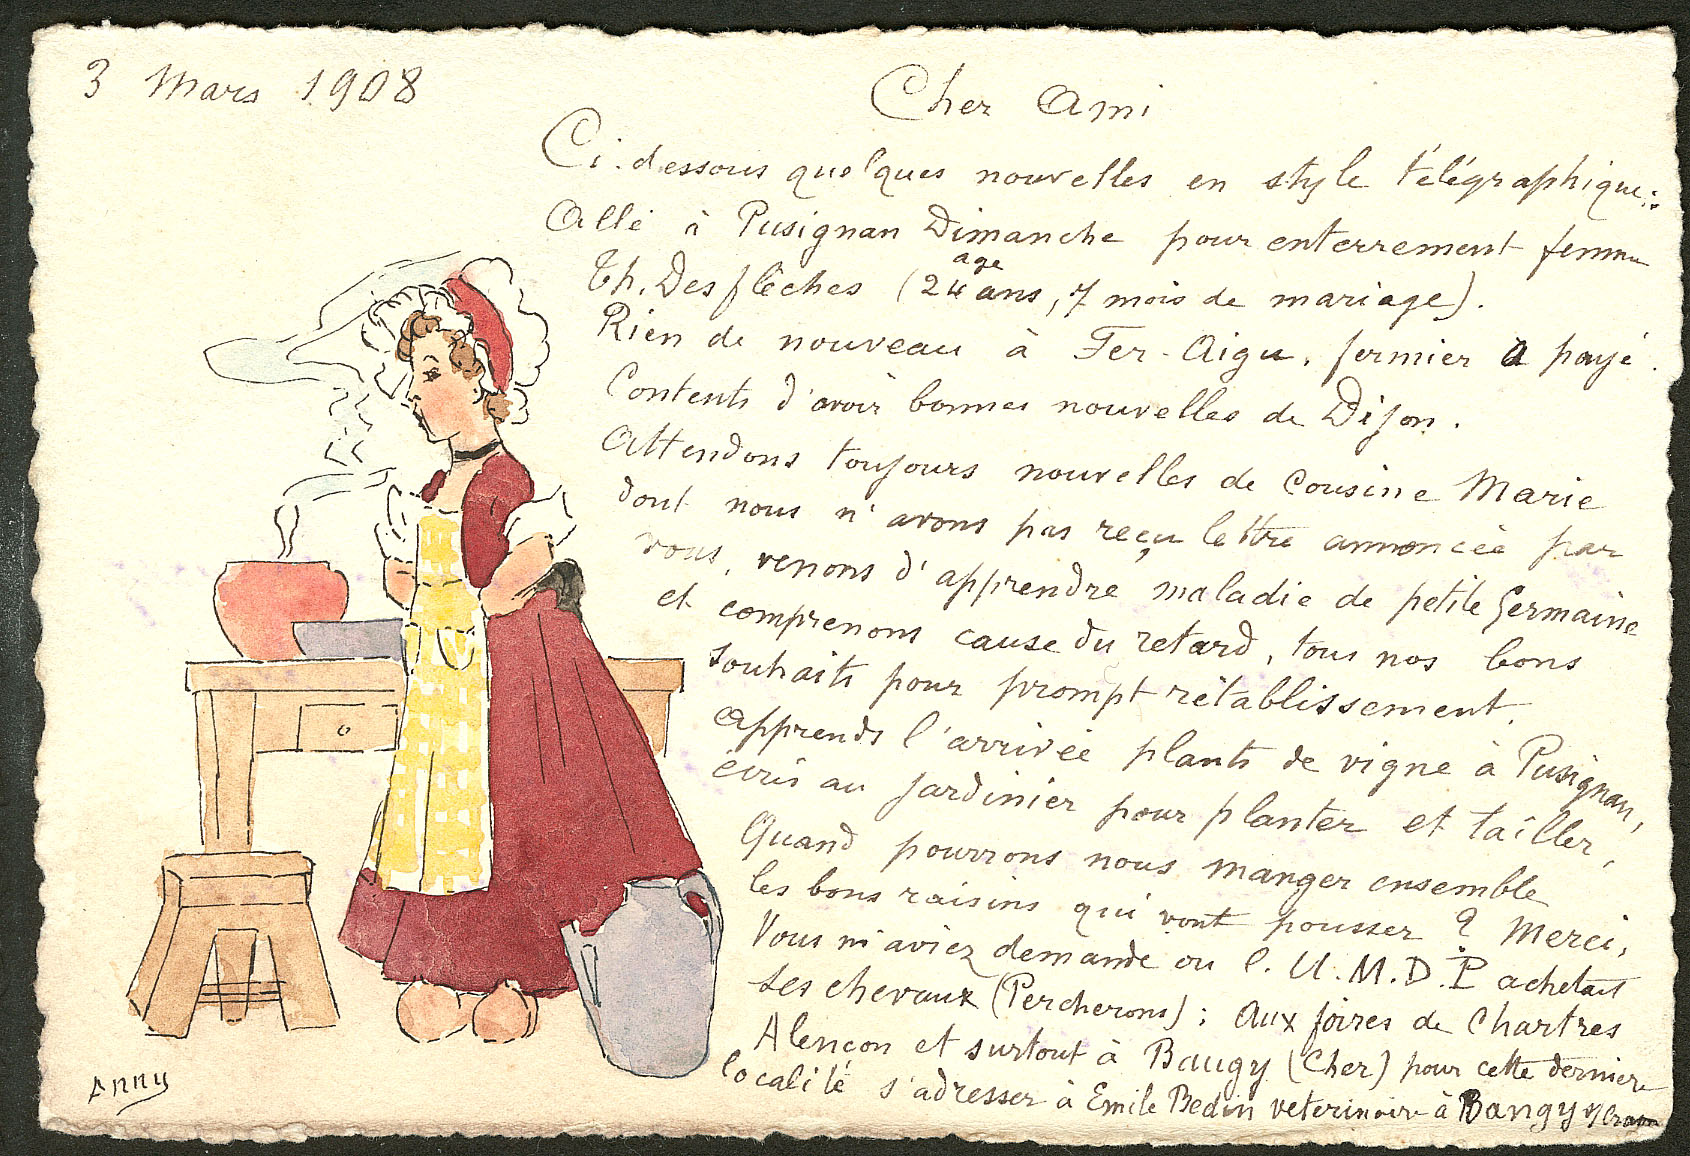 3 Mars 1908
Cher Ami
Ci-dessous quelques nouvelles en style télégraphique:
Allé à Pusignan Dimanche pour enterrement femme
age
Th. Desflêches (24 ans, 7 mois de mariage).
Rien de nouveau à Fer-Aigu, fermier a payé.
Contents d'avoir bonnes nouvelles de Dijon.
Attendons toujours nouvelles de Cousine Marie
dont nous n'avons pas reçu lettre annoncée par
vous, venons d'apprendre maladie de petite Germaine
et comprenons cause du retard, tous nos bons
souhaits pour prompt rétablissement.
Apprends l'arrivée plants de vigne à Pusignan,
écris au jardinier pour planter et tailler,
Quand pourrons nous manger ensemble
les bons raisins qui vont pousser ? Merci,
Vous m'aviez demandé ou l. U.M.D.P achetait
ses chevaux (Percherons); Aux foires de Chartres
Alençon et surtout à Baugy (Cher) pour cette dernière
localité s'adresser à Emile Bedin veterinaire à Baugy
ANNY